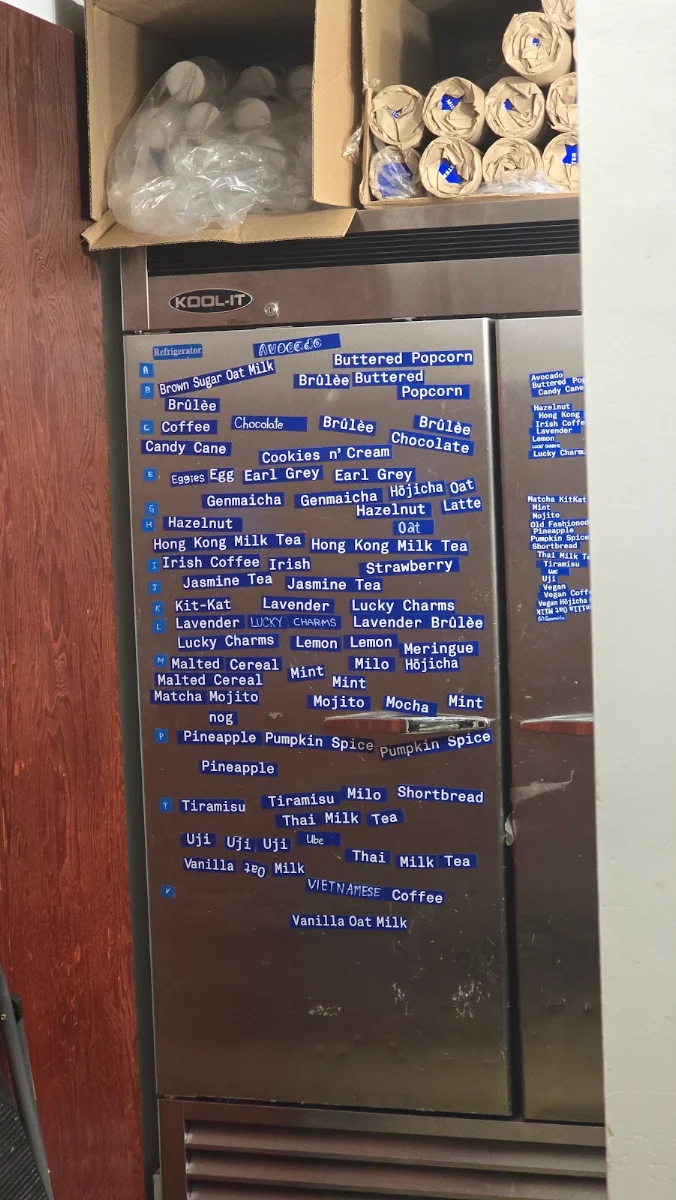 KOOL-IT
Refrigerator AVOCADO
A Buttered Popcorn
B Brown Sugar Oat Milk Brûlèe Buttered
Brûlèe Popcorn
C Coffee Chocolate Brûlèe Brûlèe
Candy Cane Chocolate
Cookies n' Cream
E Eggies Egg Earl Grey Earl Grey
Genmaicha Genmaicha Hōjicha Oat
G Hazelnut Latte
H Hazelnut Oat
Hong Kong Milk Tea Hong Kong Milk Tea
I Irish Coffee Irish Strawberry
J Jasmine Tea Jasmine Tea
K Kit-Kat Lavender Lucky Charms
L Lavender LUCKY CHARMS Lavender Brûlèe
Lucky Charms Lemon Lemon Meringue
M Malted Cereal Mint Milo Hōjicha
Malted Cereal Mint
Matcha Mojito Mojito Mocha Mint
nog
P Pineapple Pumpkin Spice Pumpkin Spice
Pineapple
T Tiramisu Tiramisu Milo Shortbread
Thai Milk Tea
Uji Uji Uji Ube
Vanilla Oat Milk Thai Milk Tea
V VIETNAMESE Coffee
Vanilla Oat Milk
Avocado
Buttered Pop
Candy Cane
Hazelnut
Hong Kong
Irish Coffe
Lavender
Lemon
LUCKY CHARMS
Lucky Charm
Matcha KitKat
Mint
Mojito
Old Fashioned
Pineapple
Pumpkin Spice
Shortbread
Thai Milk Te
Tiramisu
Ube
Uji
Vegan
Vegan Coff
Vegan Hōjicha